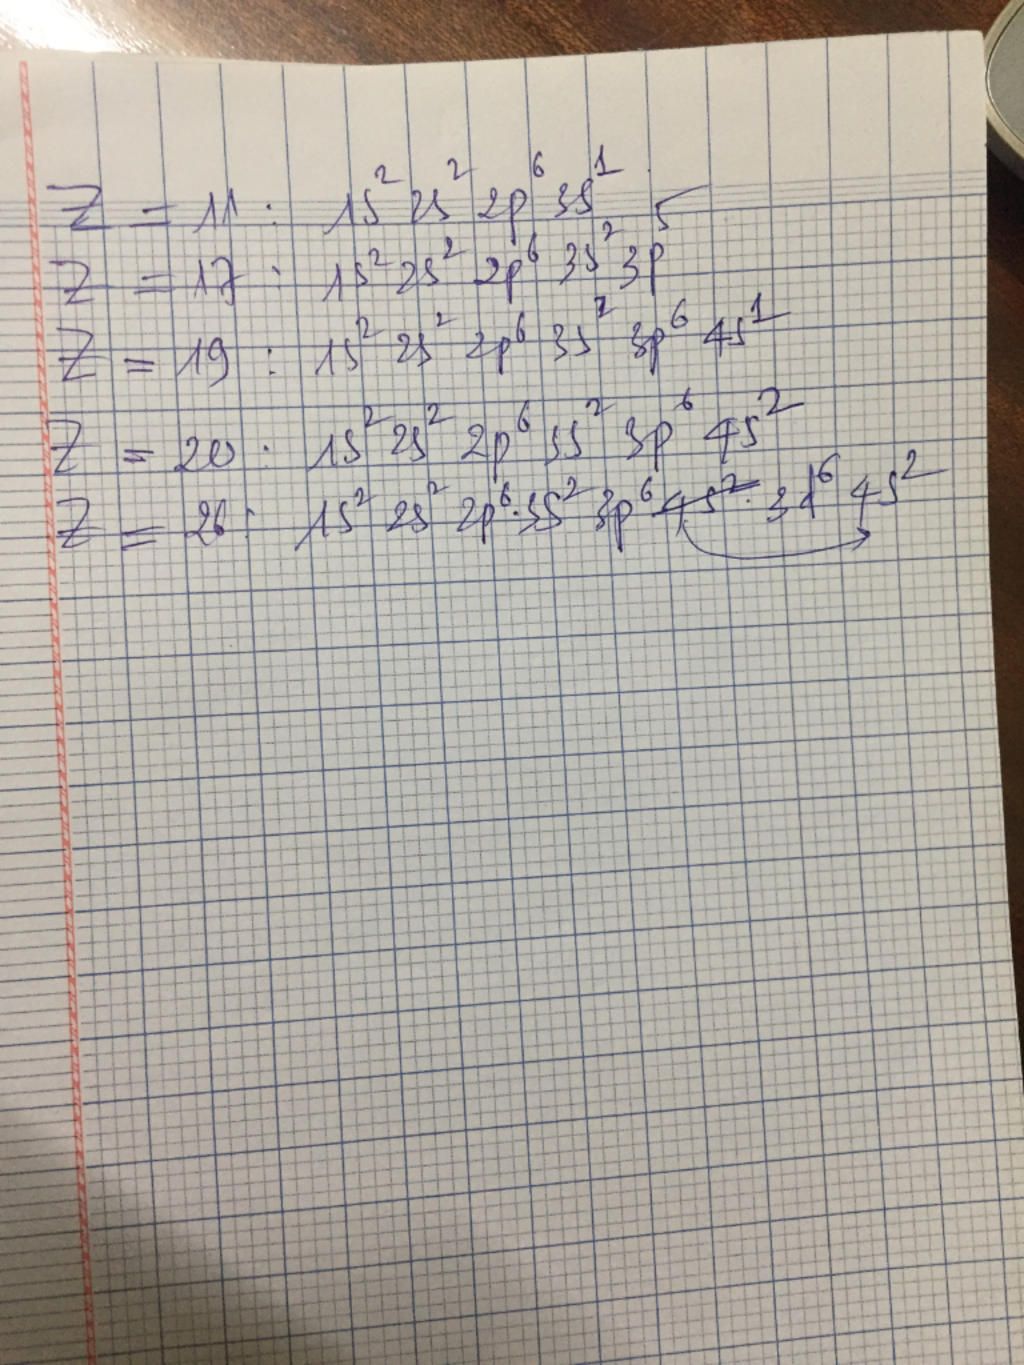 Z = 11 : 1s² 2s² 2p⁶ 3s¹
Z = 17 : 1s² 2s² 2p⁶ 3s² 3p⁵
Z = 19 : 1s² 2s² 2p⁶ 3s² 3p⁶ 4s¹
Z = 20 : 1s² 2s² 2p⁶ 3s² 3p⁶ 4s²
Z = 26 : 1s² 2s² 2p⁶ 3s² 3p⁶ 4s² 3d⁶ 4s²